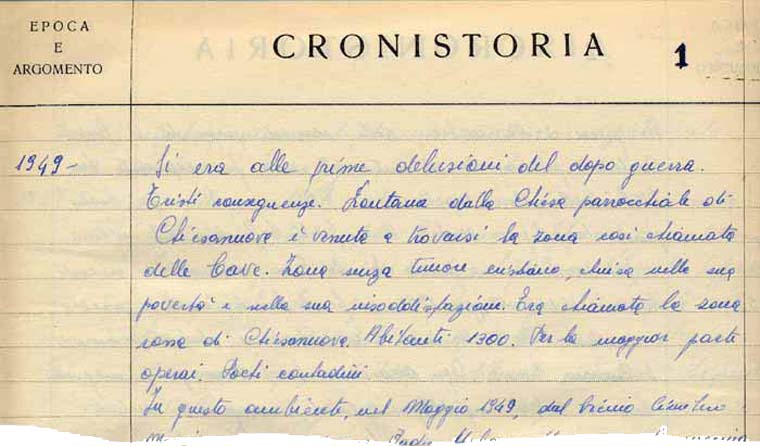 EPOCA
E
ARGOMENTO
CRONISTORIA
1
1949- Si era alle prime delusioni del dopo guerra.
Tristi conseguenze. Lontana dalla Chiesa parrocchiale di
Chiesanuova è venuta a trovarsi la zona così chiamata
delle Cave. Zona senza timore cristiano, chiusa nella sua
povertà e nella sua insoddisfazione. Era chiamata la zona
rossa di Chiesanuova. Abitanti 1300. Per la maggior parte
operai. Pochi contadini
In questo ambiente, nel Maggio 1949, dal